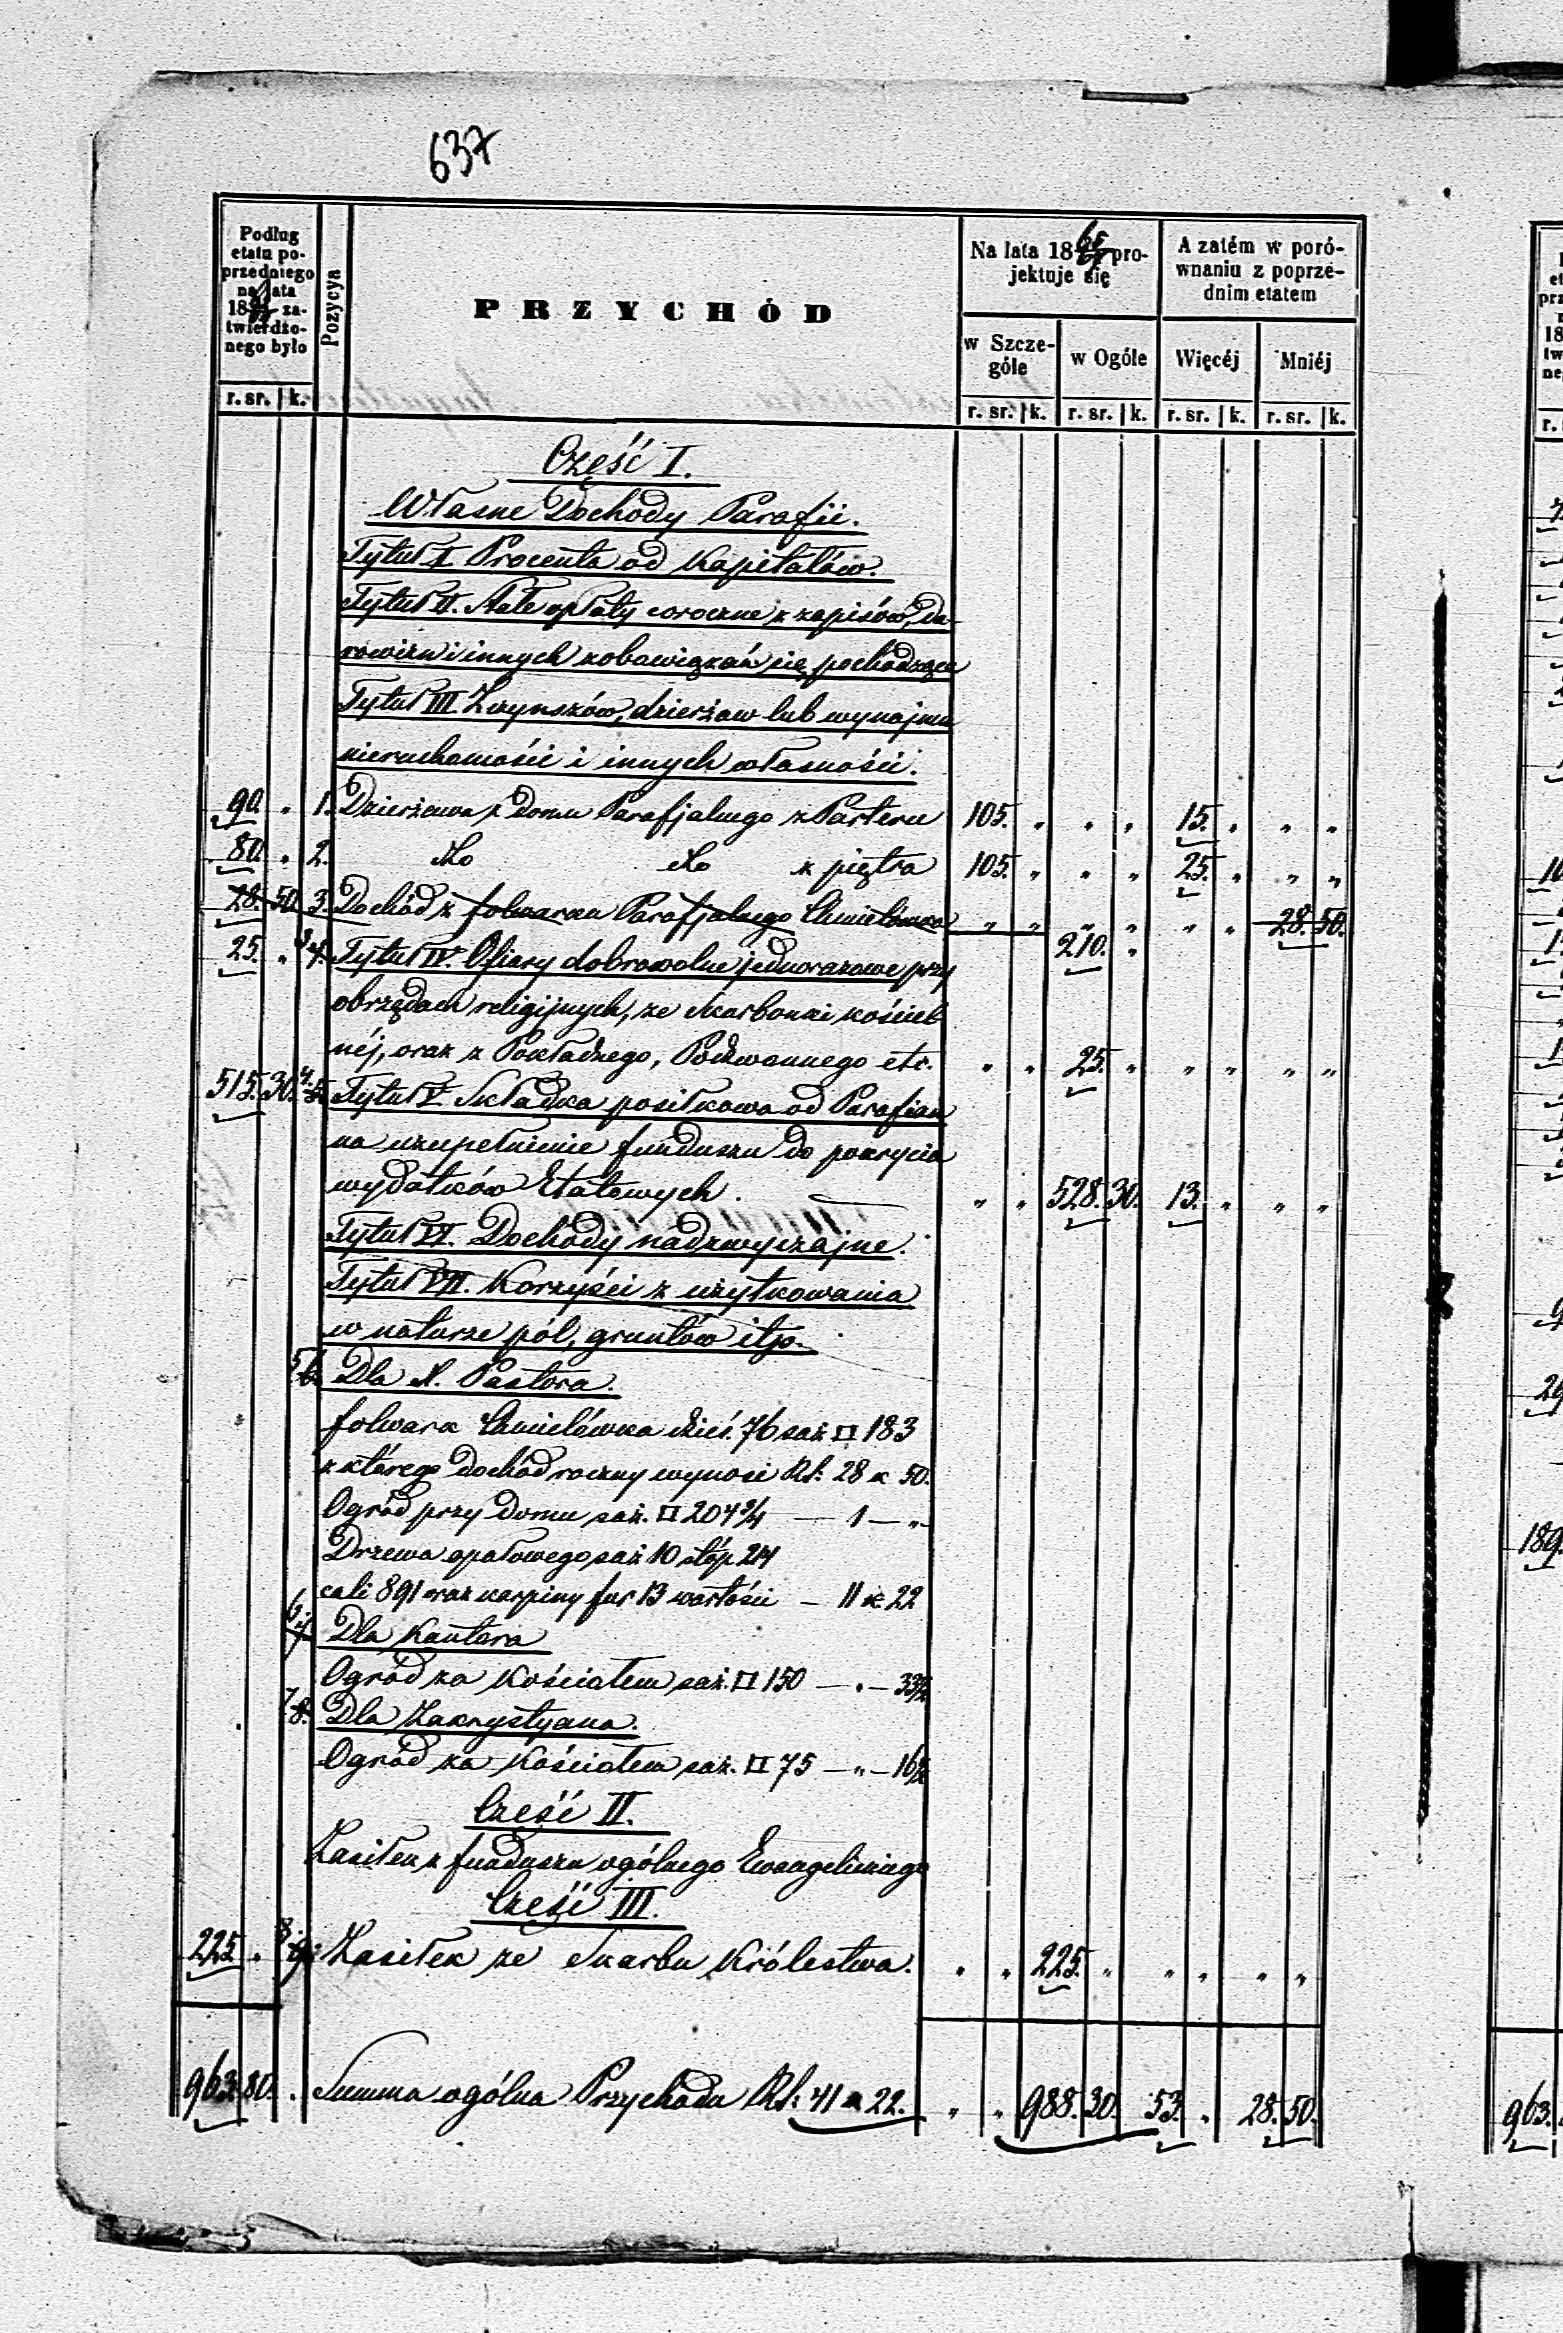 637
Podług etatu poprzedniego na lata 18 zatwierdzonego było
Pozycya
PRZYCHÓD
Na lata 18 65/67 projektuje się
A zatém w porównaniu z poprzednim etatem
w Szczególe
w Ogóle
Więcéj
Mniéj
r. sr. k. r. sr. k. r. sr. k. r. sr. k. r. sr. k.
Część I.
Własne Dochody Parafii.
Tytuł I. Procenta od Kapitałów.
Tytuł II. Stałe opłaty coroczne z zapisów, da-
rowizn i innych zobowiązań się pochodzące
Tytuł III. Z czynszów, dzierżaw lub wynajmu
nieruchomości i innych własności.
90. „ 1. Dzierżawa z Domu Parafjalnego z Parteru 105. „ „ „ 15. „ „ „
80. „ 2. dto dto z piętra 105. „ „ „ 25. „ „ „
28. 50. 3. Dochód z folwarku Parafjalnego Chmielówka „ „ „ „ „ „ 28. 50.
210. „
25. „ 3 4. Tytuł IV. Ofiary dobrowolne jednorazowe przy
obrzędach religijnych, ze Skarbonki kościel
néj, oraz z Pokładnego, Podzwonnego etc. „ „ 25. „ „ „ „ „
515. 30. 4. 5. Tytuł V. Składka posiłkowa od Parafian
na uzupełnienie funduszu do pokrycia
wydatków Etatowych. „ „ 528. 30. 13. „ „ „
Tytuł VI. Dochody nadzwyczajne.
Tytuł VII. Korzyści z użytkowania
w naturze pól, gruntów itp.
5. 6. Dla X. Pastora.
folwark Chmielówka dzieś. 76 saż. □ 183
z którego dochód roczny wynosi Rs. 28 k 50.
Ogród przy domu saż. □ 204 3/4 — 1 — „
Drzewa opałowego saż 10 stóp 214
cali 891 oraz karpiny fur 13 wartości — 11 k 22
6. 7. Dla Kantora
Ogród za Kościołem saż. □ 150 — „ — 33 1/2
7. 8. Dla Zakrystyana.
Ogród za Kościołem saż. □ 75 — „ — 16 1/2
Część II.
Zasiłek z funduszu ogólnego Ewangelickiego
Część III.
225. „ 8. 9. Zasiłek ze Skarbu Królestwa. „ „ 225. „ „ „ „ „
963. 80. Summa ogólna Przychodu Rs. 41 k 22. „ „ 988. 30. 53. „ 28. 50.